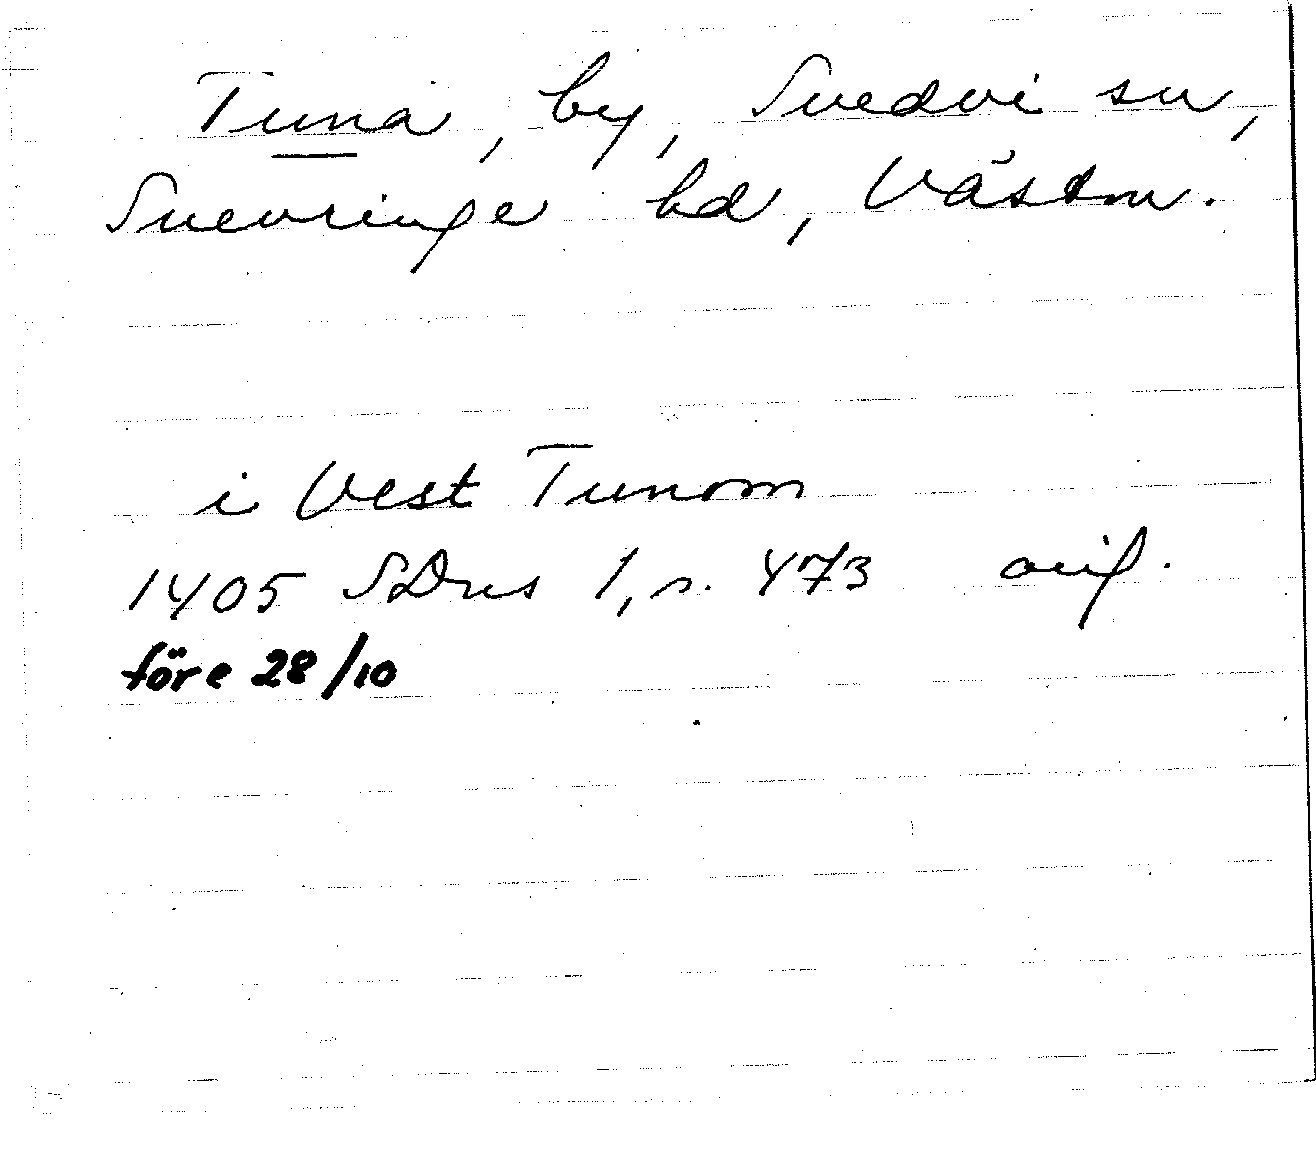 Tuna, by, Svedvi sn,
Snevringe hd, Västm.
i Vest Tunom
1405 SDns 1, s. 473 orig.
före 28/10